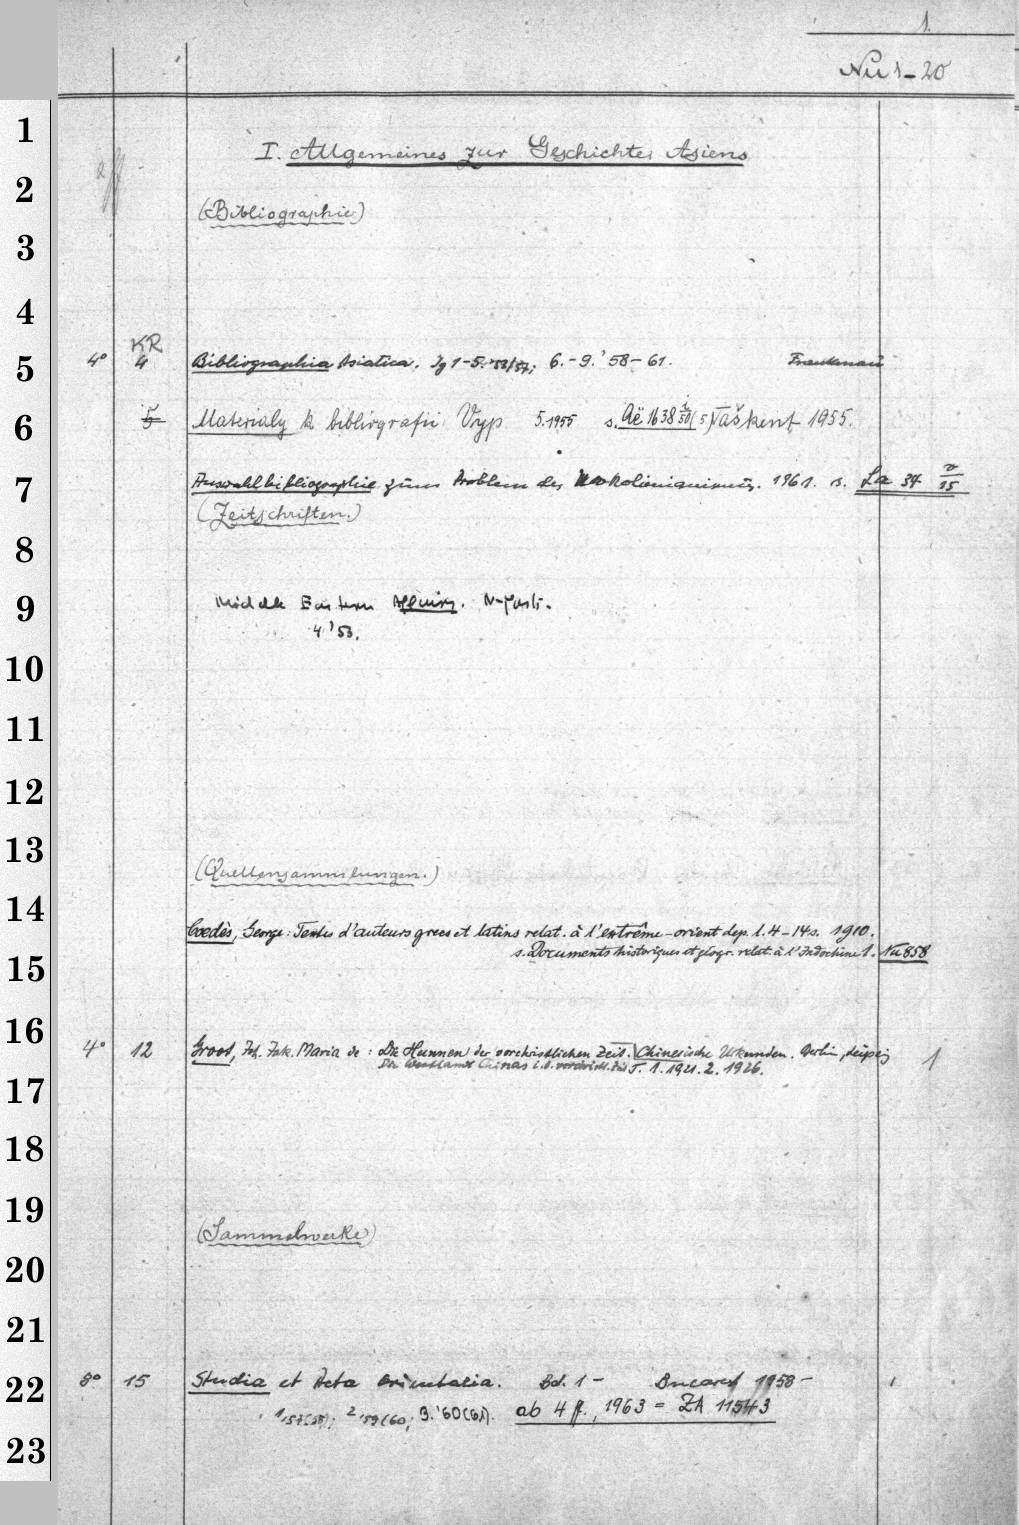 1.
Nu 1-20
1
I. Allgemeines zur Geschichte Asiens
2
(Bibliographie)
3
4
KR
5
4° 4 Bibliographia Asiatica. Jg 1-5. '53/57; 6.-9.'58-61.
6
5 Materialy k bibliografii Vyp 5.1955 s. Aë 1638 50 (5) Taškent 1955.
7
Auswahlbibliographie zum Problem des Neokolonialismus. 1961. s. La 34 v/15
(Zeitschriften.)
8
9
Middle Eastern Affairs. N-York.
4'53.
10
11
12
13
(Quellensammlungen.)
14
Coedès, George: Textes d'auteurs grecs et latins relat. à l'extrême-orient dep. l. 4-14 s. 1910.
15
s. Documents historiques et géogr. relat. à l'Indochine 1. Nu 858
16
4° 12 Groot, Joh. Jak. Maria de: Die Hunnen der vorchristlichen Zeit. Chinesische Urkunden. Berlin, Leipzig 1
Die Westlande Chinas i. d. vorchristl. Zeit T. 1. 1921. 2. 1926.
17
18
19
(Sammelwerke)
20
21
22
8° 15 Studia et Acta Orientalia. Bd. 1- Bucarest 1958-
1,'57(58); 2,'59(60; 3.'60(61). ab 4 ff., 1963 = ZA 11543
23